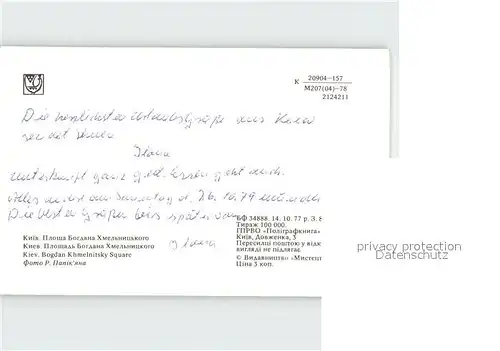 К 20904—157
М207(04)—78
2124211
Die herzlichsten Urlaubsgrüße aus Kiew
sendet Ihnen
Ilona
Unterkunft ganz gut. Essen geht auch.
Alles andere am Samstag d. 26.10.79
Die besten Grüße bis später
Ilona
Київ. Площа Богдана Хмельницького
Киев. Площадь Богдана Хмельницкого
Kiev. Bogdan Khmelnitsky Square
Фото Р. Папік'яна
БФ 34888. 14. 10. 77 р. З. 8
Тираж 100 000.
ГПРВО «Поліграфкнига»
Київ, Довженка, 3
Пересилці поштою у відк
вигляді не підлягає.
© Видавництво «Мистецт
Ціна 3 коп.
privacy protection
www.oldthing.com